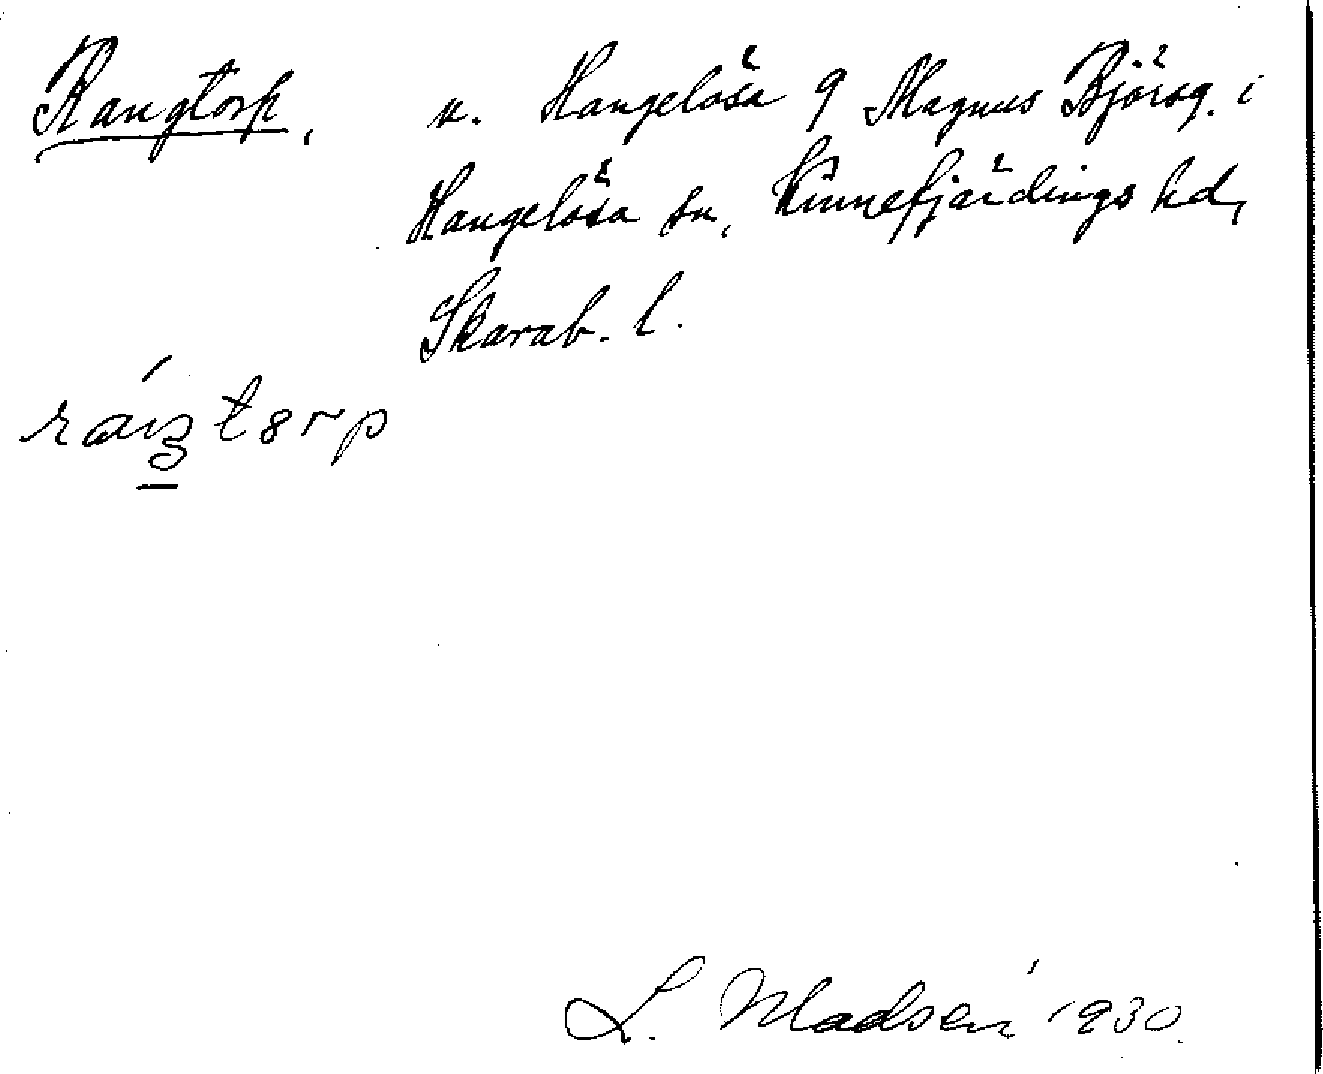 Rangtorp, u. Hangelösa 9 Magnus Björsg. i
Hangelösa sn, Kinnefjärdings hd,
Skarab. l.
L. Madsen 1930.